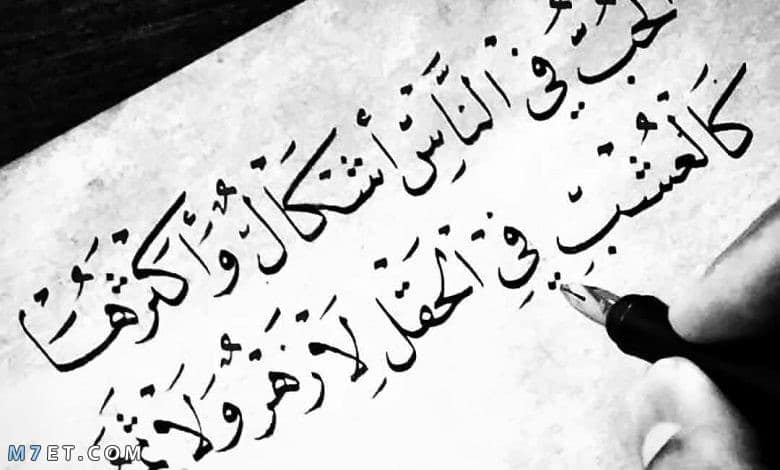 الحُبُّ فِي النَّاسِ أشْكَالٌ وَأكثَرُهَا
كَالعُشْبِ فِي الحَقْلِ لَا زَهْرٌ وَلَا
M7ET.COM